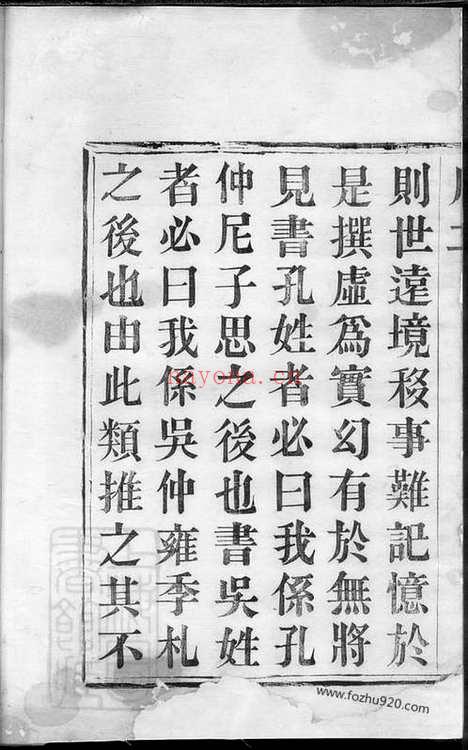 則世遠境移事難記憶於
是撰虛爲實幻有於無將
見書孔姓者必曰我係孔
仲尼子思之後也書吳姓
者必曰我係吳仲雍季札
之後也由此類推之其不
nayona.cn
www.fozhu920.com